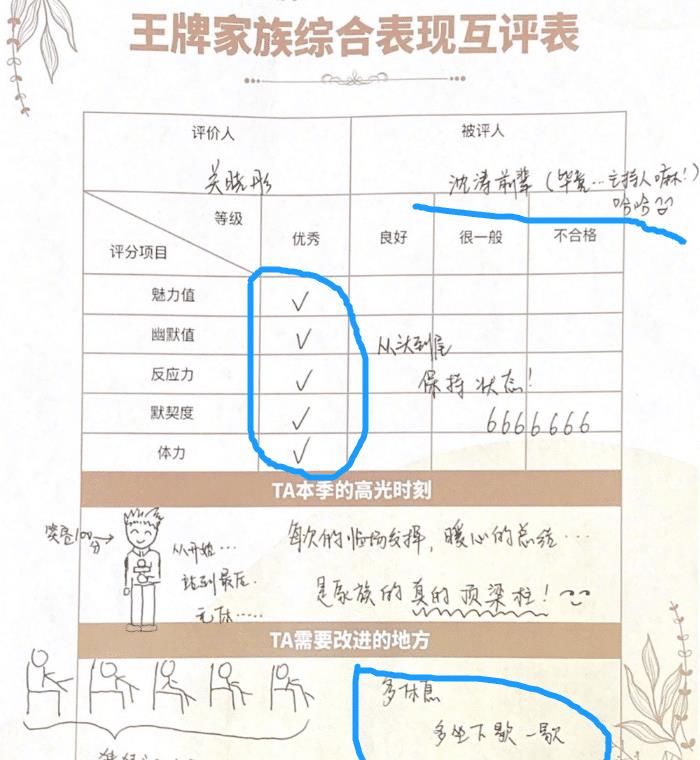 王牌家族综合表现互评表
评价人 被评人
关晓彤 沈涛前辈（毕竟...主持人嘛！）
哈哈
等级
评分项目 优秀 良好 很一般 不合格
魅力值 ✓
幽默值 ✓
反应力 ✓
默契度 ✓
体力 ✓
从头到尾
保持状态！
6666666
TA本季的高光时刻
笑容100分→
从开始...
站到最后.
无休.....
每次的临场发挥，暖心的总结...
是家族的真的顶梁柱！
TA需要改进的地方
多休息
多坐下歇一歇